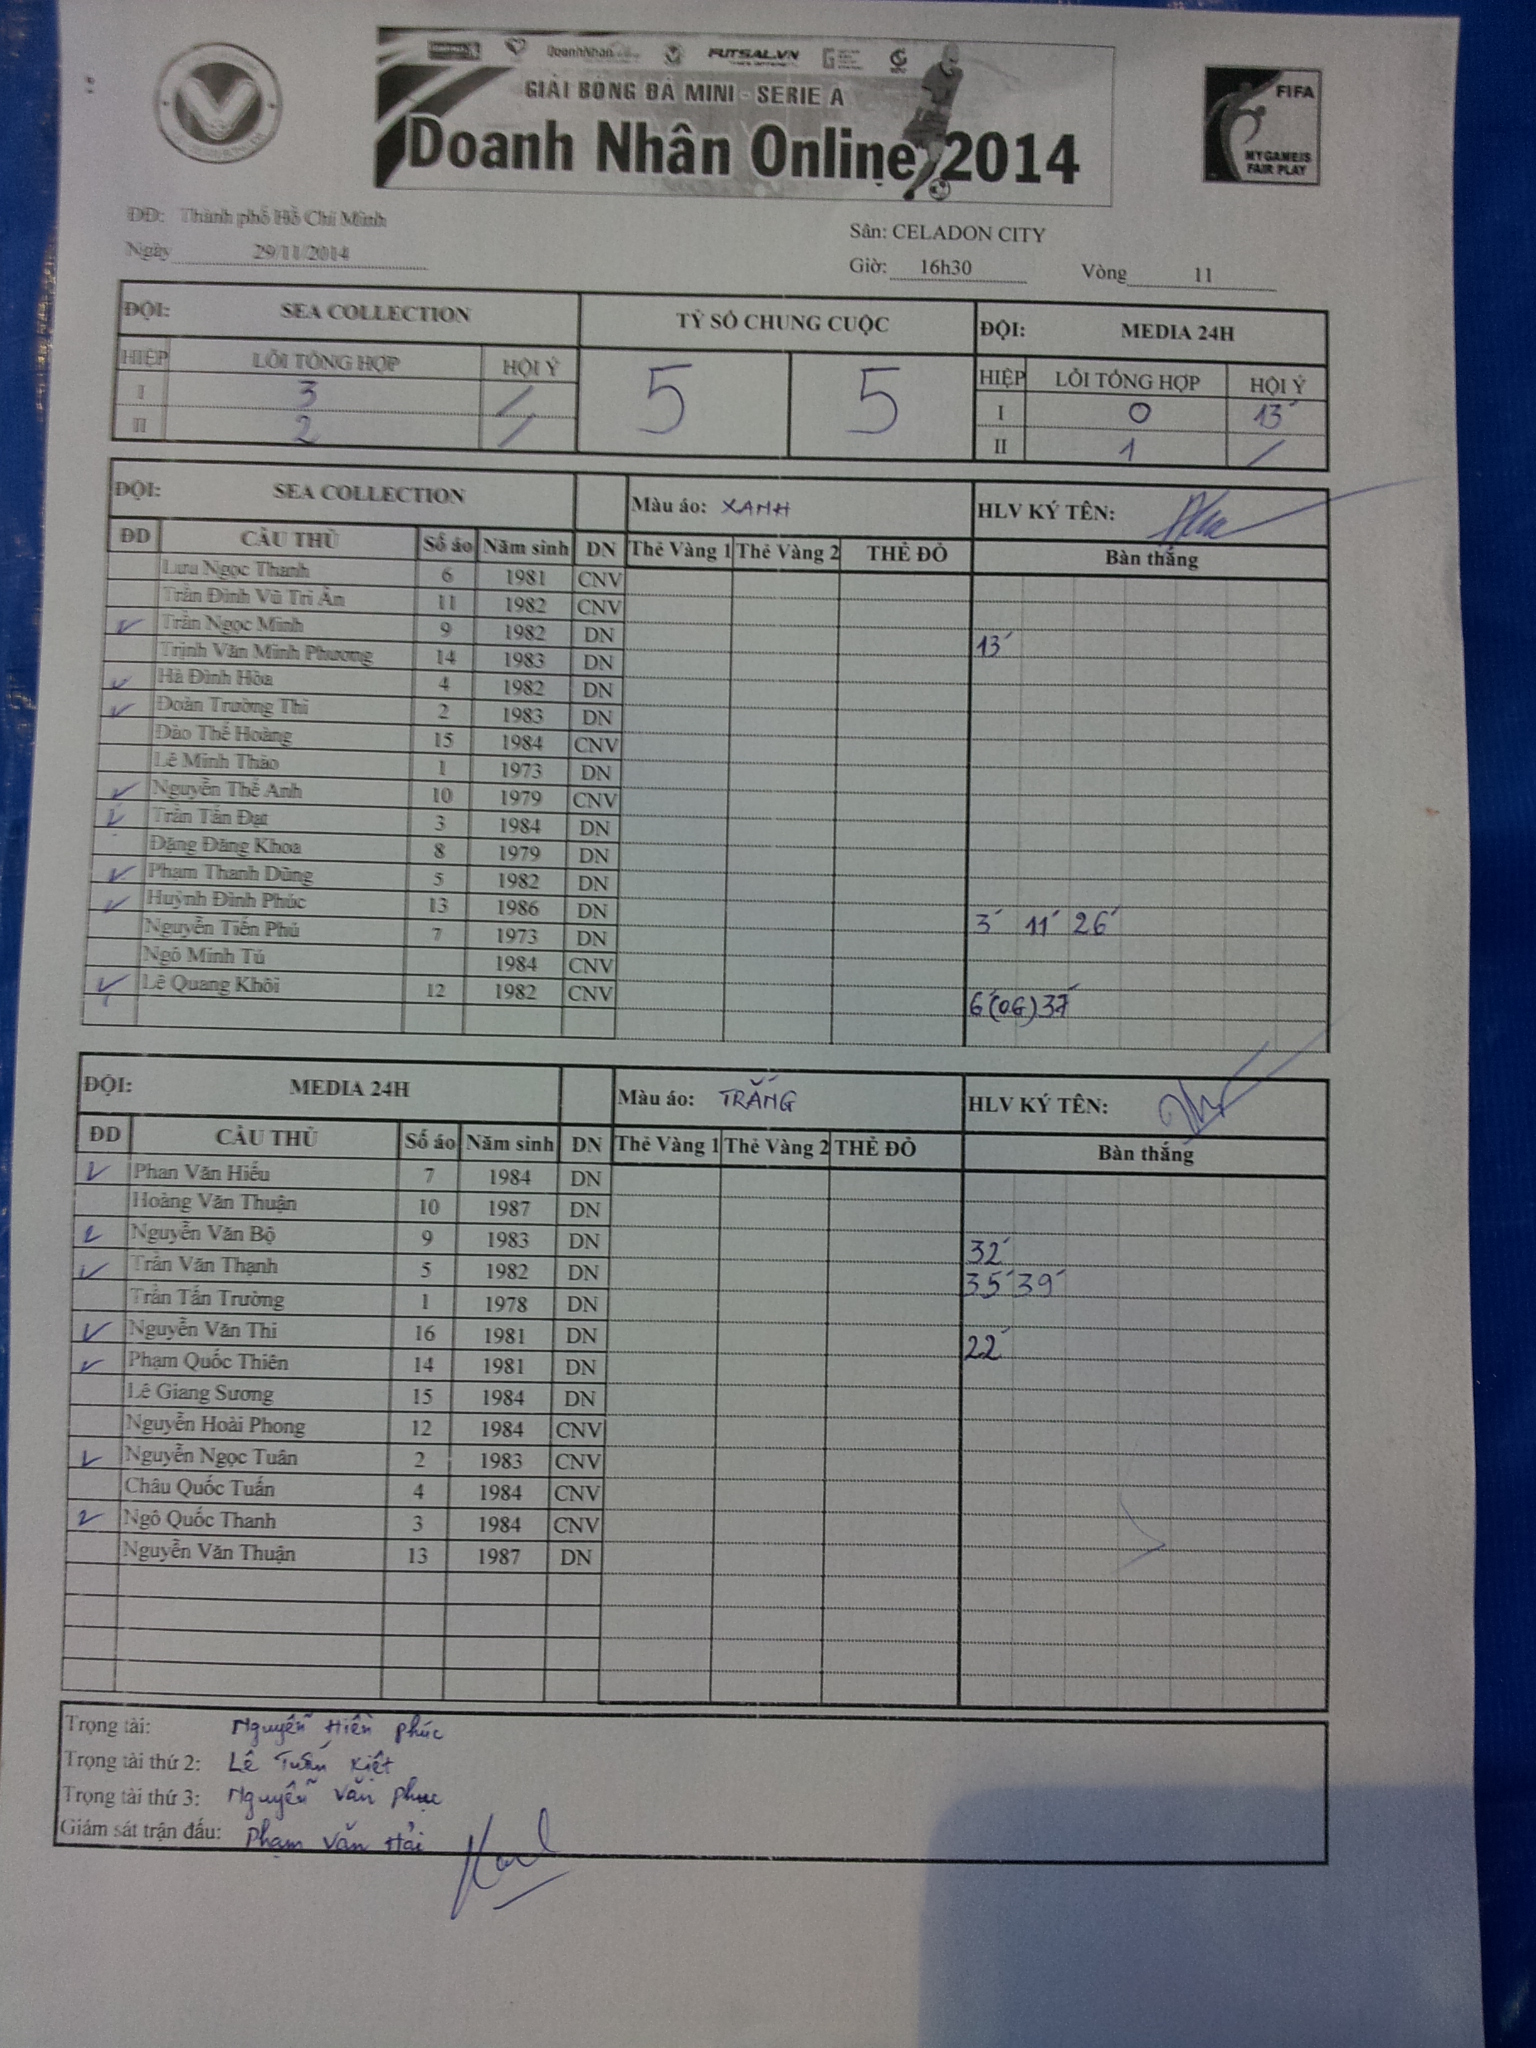 DoanhNhân FUTSAL.VN
GIẢI BÓNG ĐÁ MINI - SERIE A
Doanh Nhân Online 2014
FIFA
MY GAME IS
FAIR PLAY
ĐĐ: Thành phố Hồ Chí Minh
Sân: CELADON CITY
Ngày 29/11/2014
Giờ: 16h30 Vòng 11
ĐỘI: SEA COLLECTION TỶ SỐ CHUNG CUỘC ĐỘI: MEDIA 24H
HIỆP LỖI TỔNG HỢP HỘI Ý 5 5 HIỆP LỖI TỔNG HỢP HỘI Ý
I 3 / I 0 13'
II 2 / II 1 /
ĐỘI: SEA COLLECTION Màu áo: XANH HLV KÝ TÊN:
ĐD CẦU THỦ Số áo Năm sinh DN Thẻ Vàng 1 Thẻ Vàng 2 THẺ ĐỎ Bàn thắng
Lưu Ngọc Thanh 6 1981 CNV
Trần Đình Vũ Tri Ân 11 1982 CNV
✓ Trần Ngọc Minh 9 1982 DN 13'
Trịnh Văn Minh Phương 14 1983 DN
✓ Hà Đình Hòa 4 1982 DN
✓ Đoàn Trường Thi 2 1983 DN
Đào Thế Hoàng 15 1984 CNV
Lê Minh Thảo 1 1973 DN
✓ Nguyễn Thế Anh 10 1979 CNV
✓ Trần Tấn Đạt 3 1984 DN
Đặng Đăng Khoa 8 1979 DN
✓ Phạm Thanh Dũng 5 1982 DN
✓ Huỳnh Đình Phúc 13 1986 DN 3' 11' 26'
Nguyễn Tiến Phú 7 1973 DN
Ngô Minh Tú 1984 CNV
✓ Lê Quang Khôi 12 1982 CNV 6'(OG) 37'
ĐỘI: MEDIA 24H Màu áo: TRẮNG HLV KÝ TÊN:
ĐD CẦU THỦ Số áo Năm sinh DN Thẻ Vàng 1 Thẻ Vàng 2 THẺ ĐỎ Bàn thắng
✓ Phan Văn Hiếu 7 1984 DN
Hoàng Văn Thuận 10 1987 DN
✓ Nguyễn Văn Bộ 9 1983 DN 32'
✓ Trần Văn Thạnh 5 1982 DN 35' 39'
Trần Tấn Trường 1 1978 DN
✓ Nguyễn Văn Thi 16 1981 DN 22'
✓ Phạm Quốc Thiên 14 1981 DN
Lê Giang Sương 15 1984 DN
Nguyễn Hoài Phong 12 1984 CNV
✓ Nguyễn Ngọc Tuân 2 1983 CNV
Châu Quốc Tuấn 4 1984 CNV
✓ Ngô Quốc Thanh 3 1984 CNV
Nguyễn Văn Thuận 13 1987 DN
Trọng tài: Nguyễn Hiền Phúc
Trọng tài thứ 2: Lê Tuấn Kiệt
Trọng tài thứ 3: Nguyễn Văn Phục
Giám sát trận đấu: Phạm Văn Hải